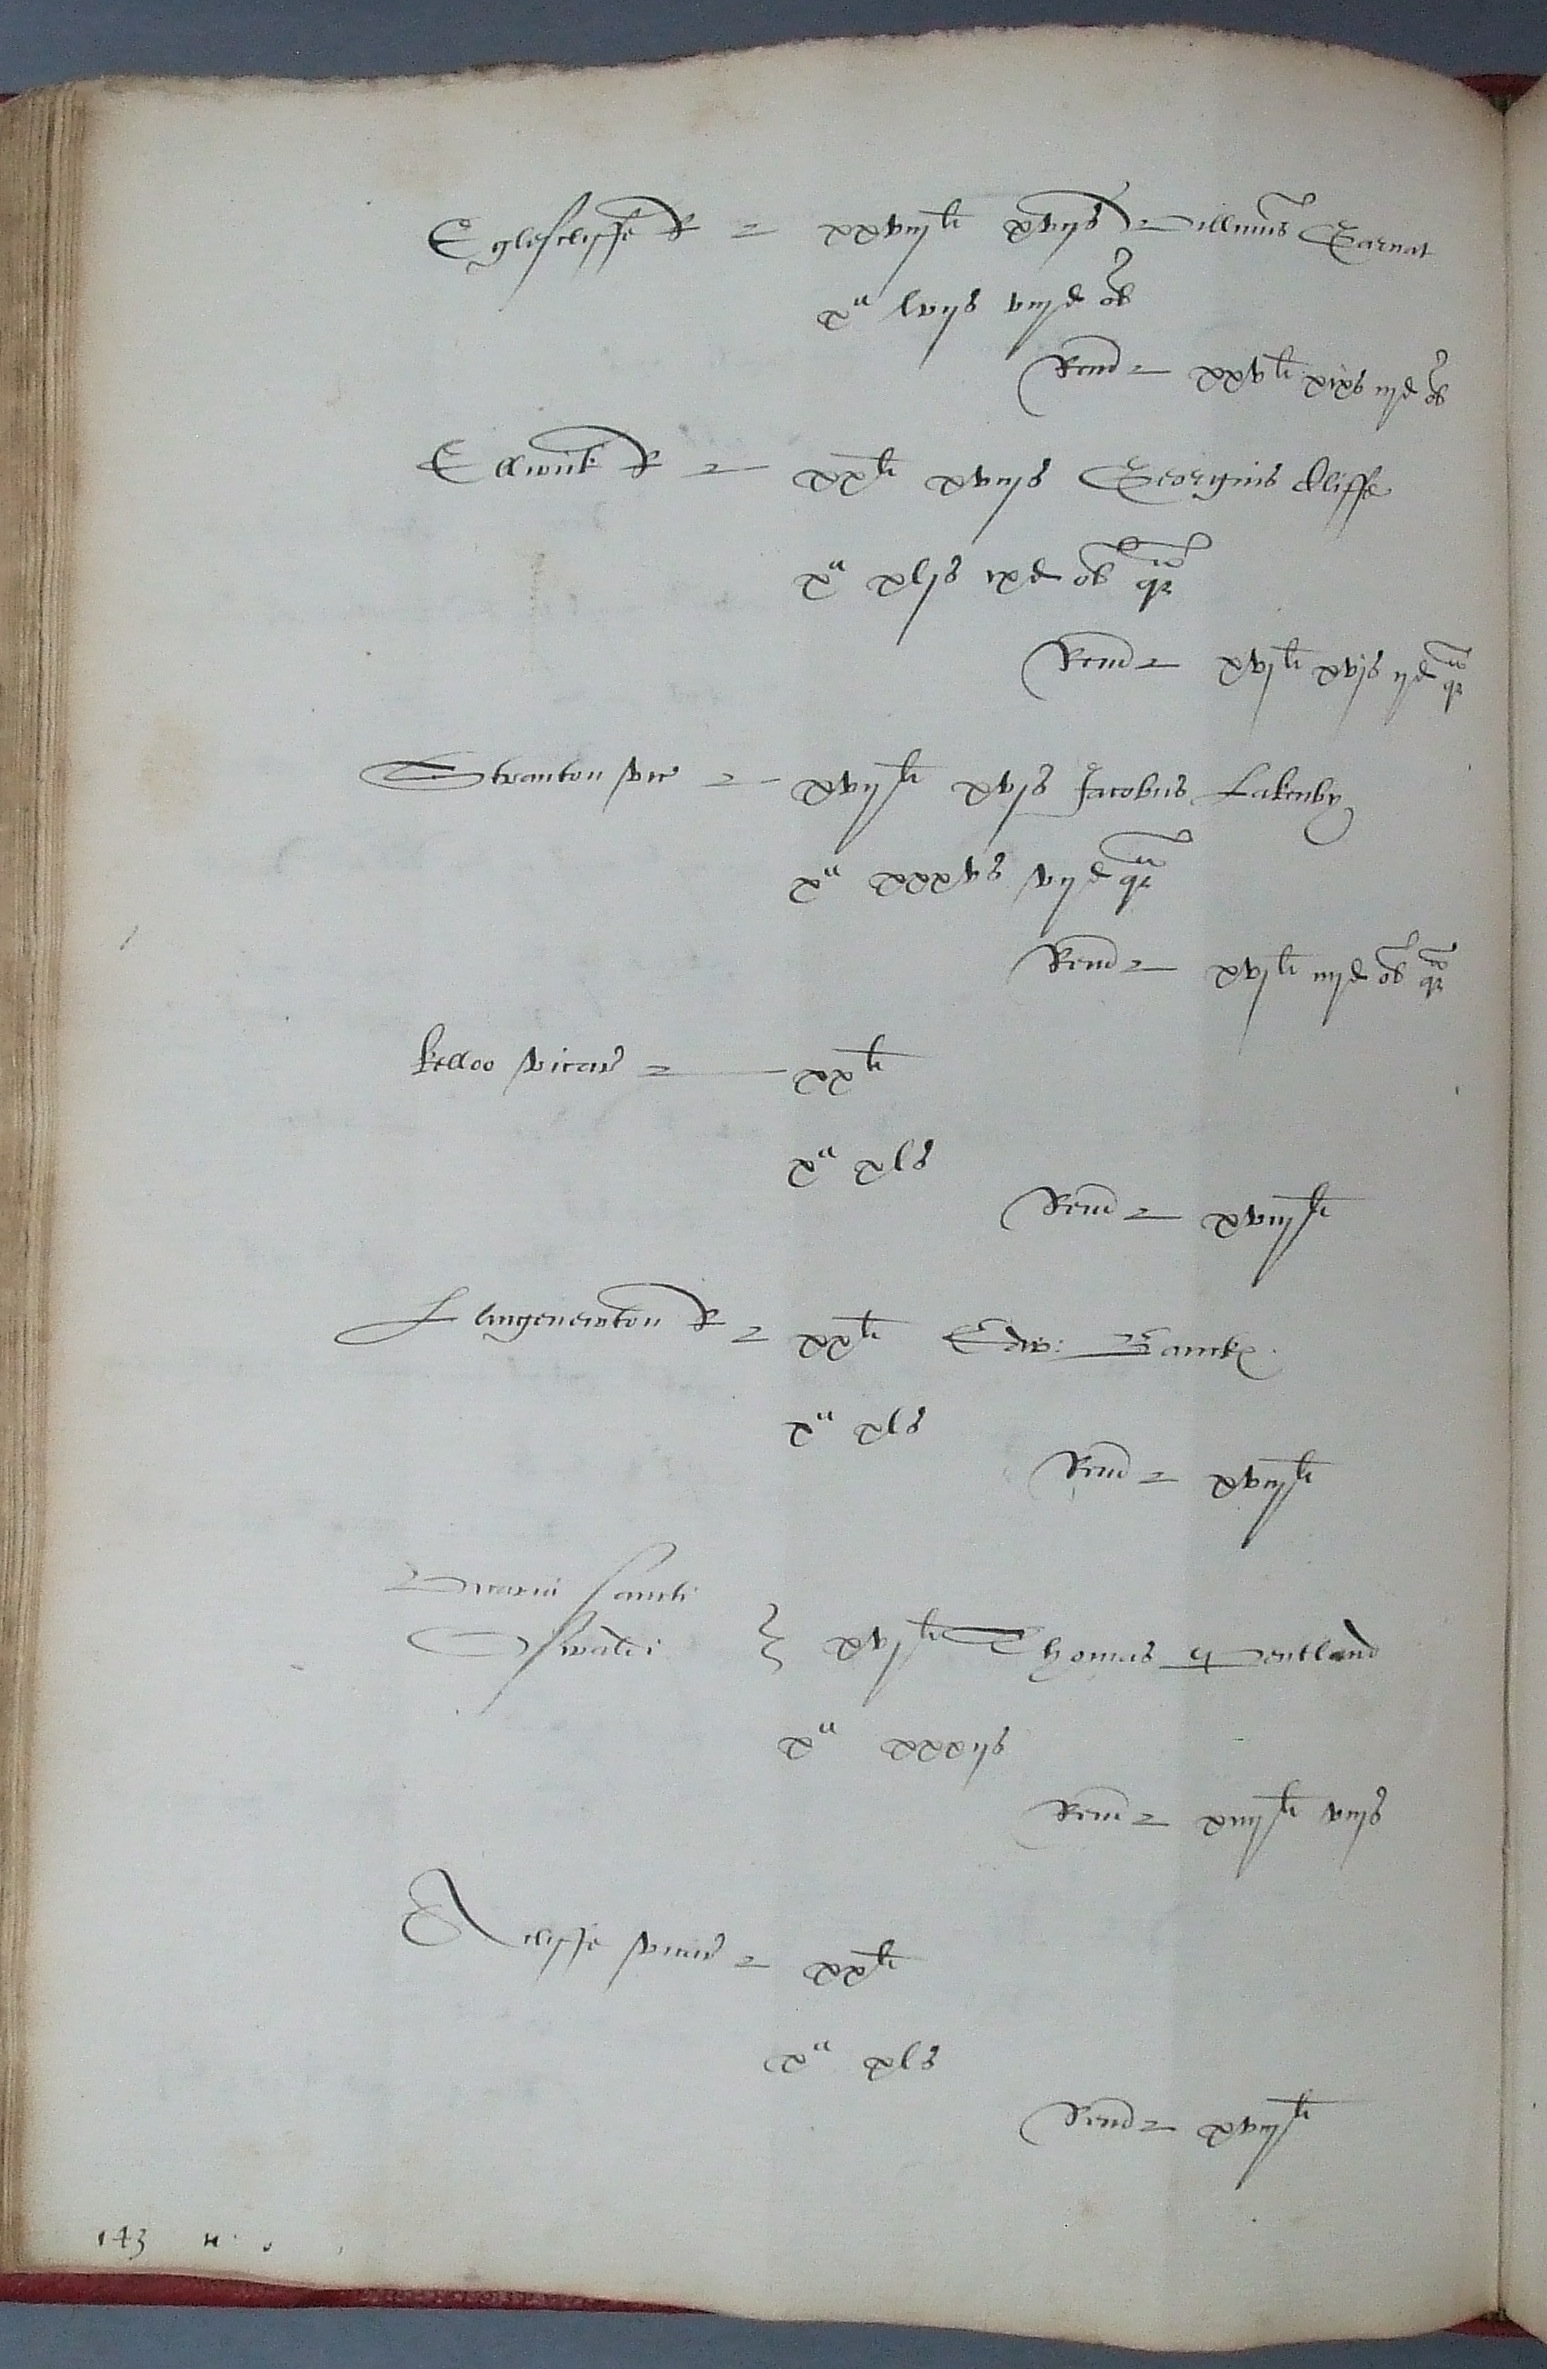 Eglescliffe R = xxviij li xvijs Willimus Garnat
xa lvijs viijd ob
Rem = xxv li xixs iijd ob
Elwick R = xx li xviijs Georgius Cliffe
xa xljs ixd ob qr
Rem = xvj li xvjs ijd qr
Stranton vic = xvij li xvjs Jacobus Lakenby
xa xxxvs vijd qr
Rem = xvj li iiijd ob qr
Kelloo vicar = xx li
xa xls
Rem = xviij li
Langenewton R = xx li Edw: Banckes
xa xls
Rem = xviij li
Vicaria sancti
Oswaldi } xvj li Thomas Pentland
xa xxxijs
Rem = xiiij li viijs
Acliffe vicar = xx li
xa xls
Rem = xviij li
143